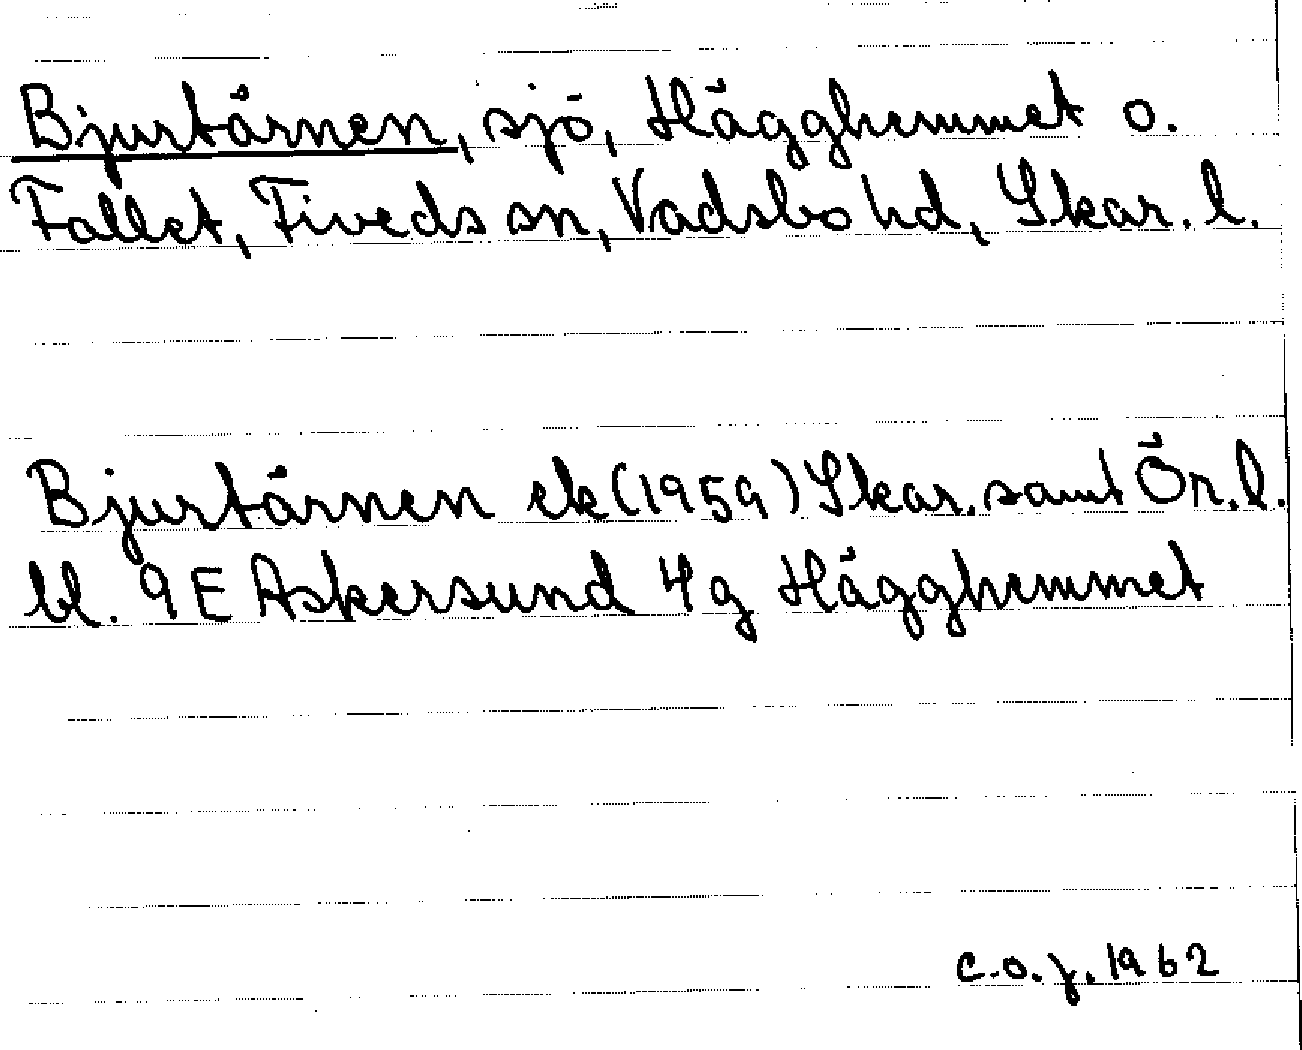 Bjurtärnen, sjö, Hägghemmet o.
Fallet, Tiveds sn, Vadsbo hd, Skar. l.
Bjurtärnen ek (1959) Skar. samt Ör. l.
bl. 9E Askersund 4g Hägghemmet
C.O.J. 1962